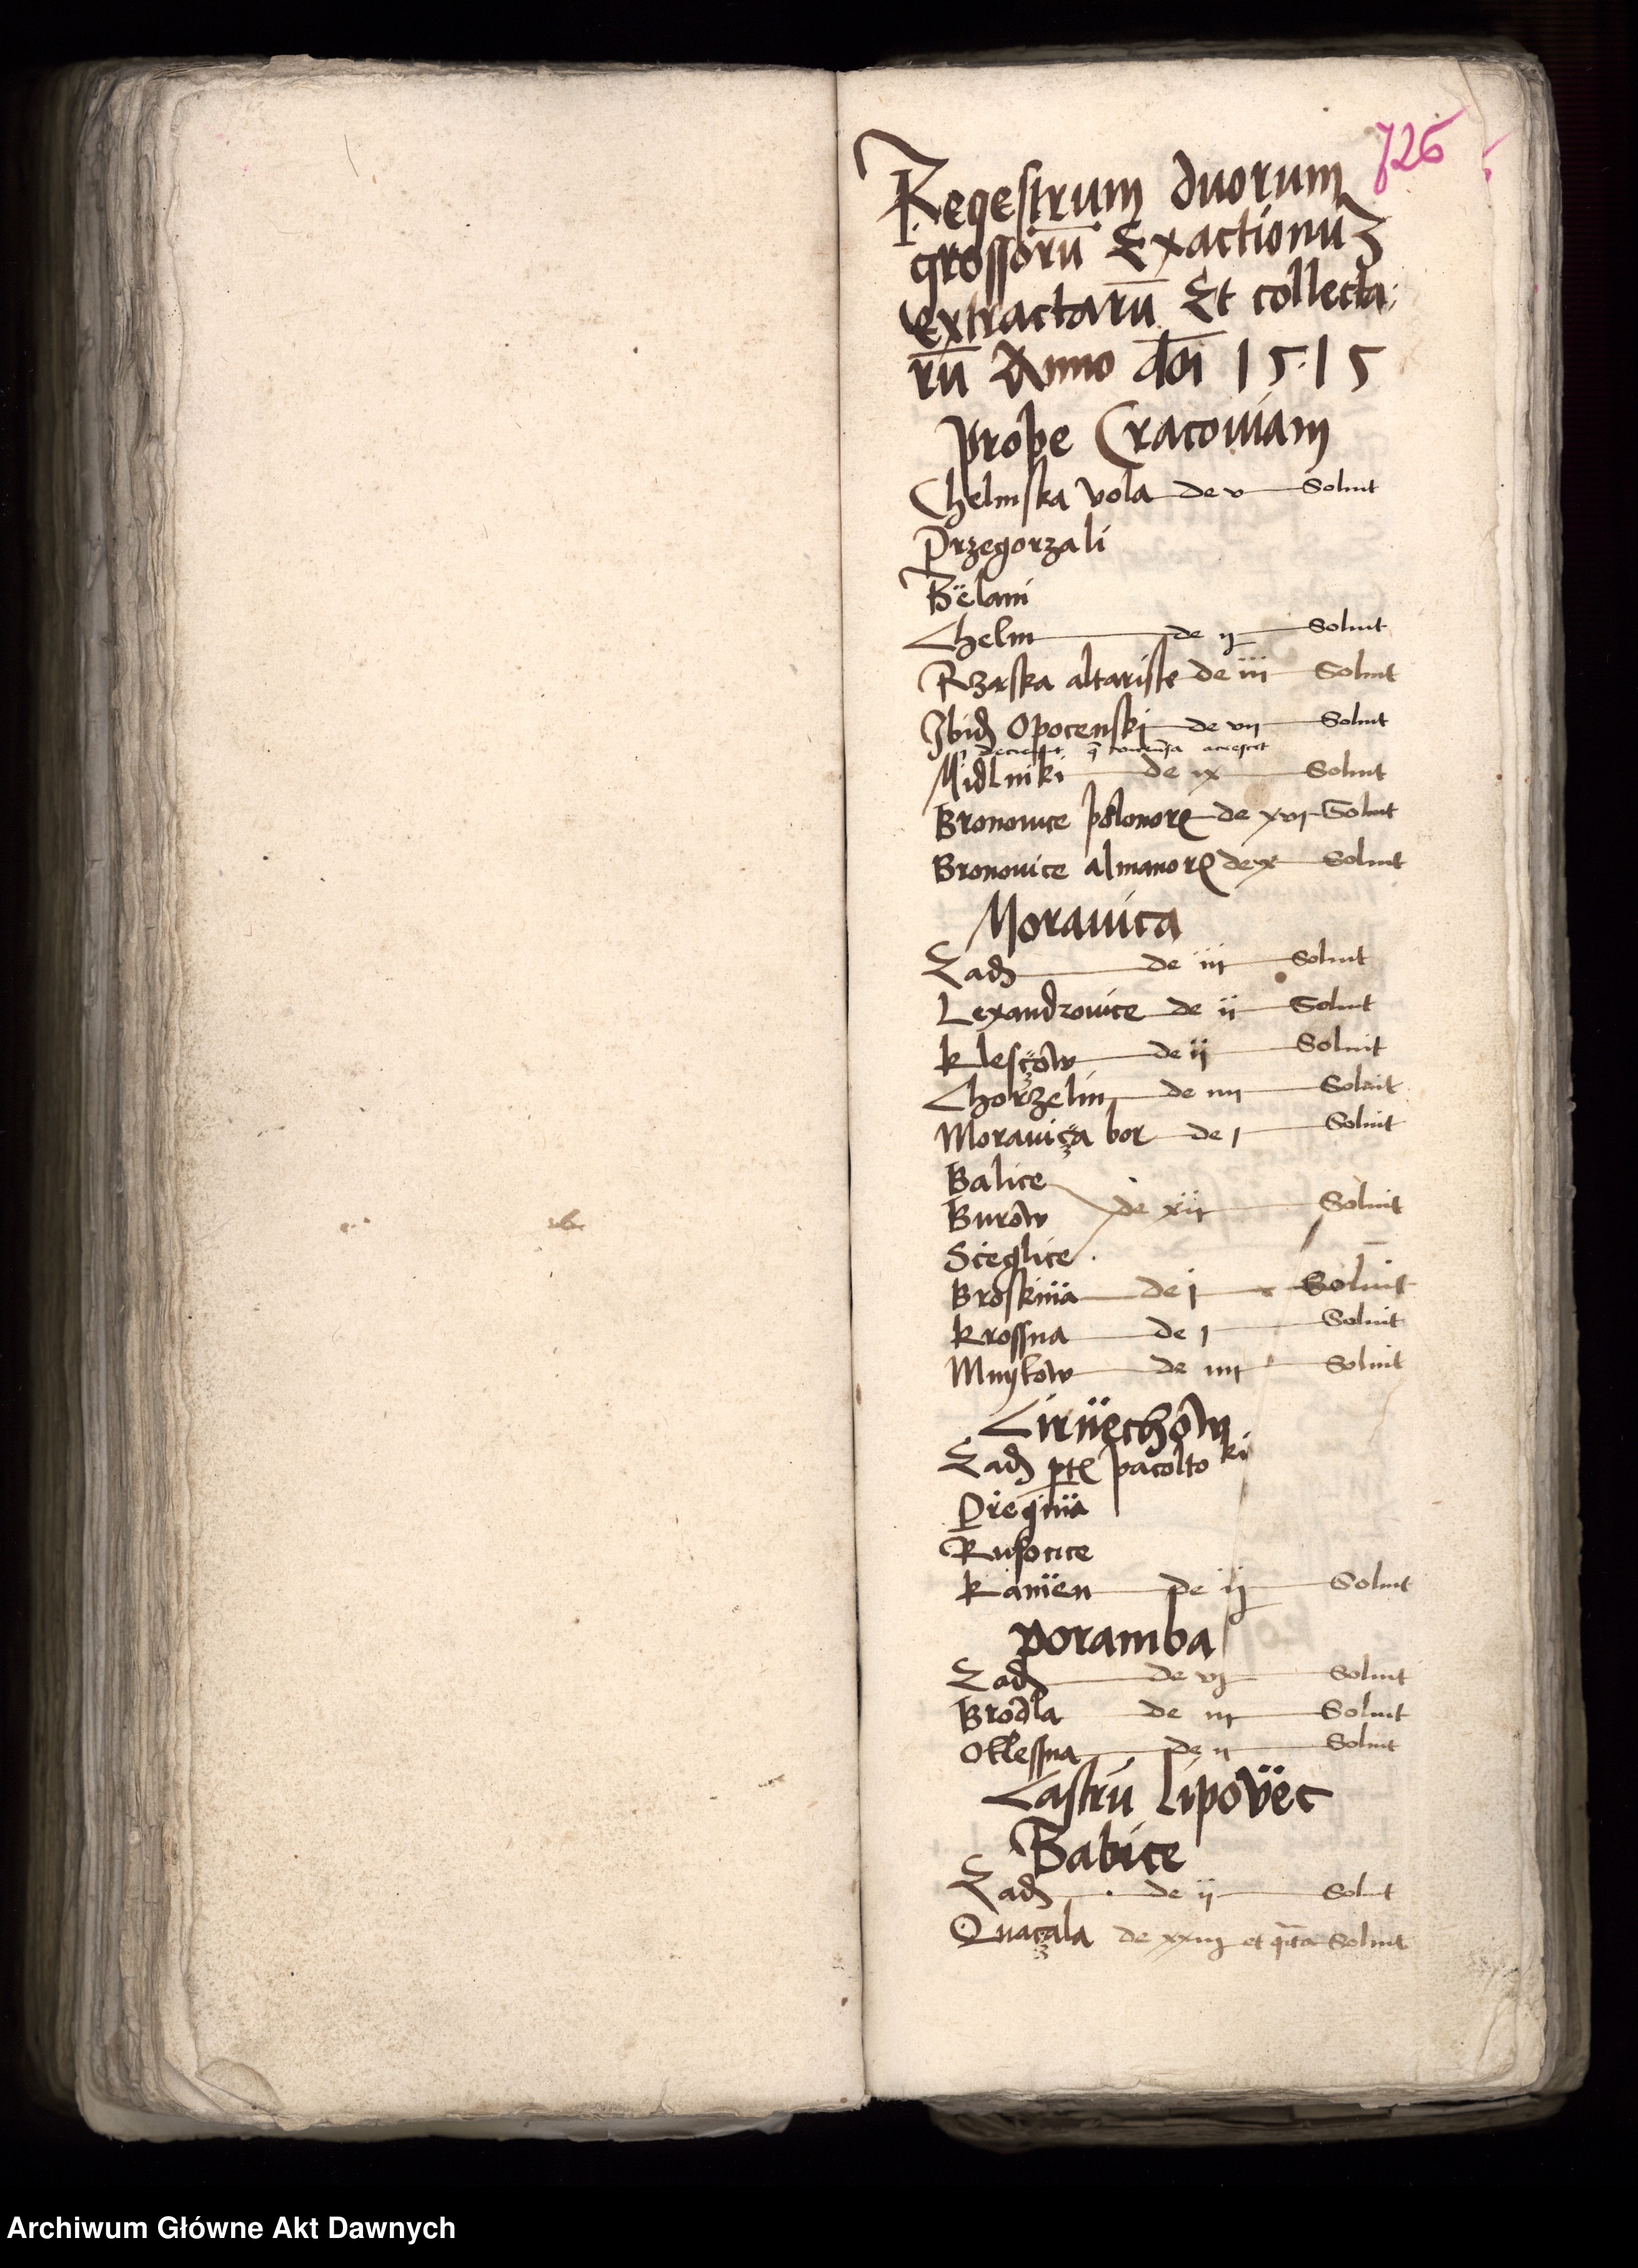 726
Regestrum duorum
grossorū Exactionuʒ
extractarū Et collecta:
rū Anno dn̄i 1515
prope Cracoviam
Chelmska vola de v Soluit
Przegorzali
Bëlani
Chelm de ij Soluit
Rzaska altariste de iii Soluit
Ibid Opocenski de vii Soluit
accrescit
Midlniki de ix Soluit
Bronovice polonorꝝ de xvi Soluit
Bronovice almanorꝝ de x Soluit
Moravica
Ead de iii Soluit
Lexandrovice de ii Soluit
Klesczow de ij Soluit
Chorzelin de iiii Soluit
Moravicza bor de 1 Soluit
Balice
Burow de xii Soluit
Sceglice
Broskinä de j Soluit
Krossna de 1 Soluit
Mnykow de iiii Soluit
Cirnëchow
Ead ptꝭ pacoltoki
Preginia
Rusocice
Kamën de ij Soluit
poramba
Ead de vj Soluit
Brodla de iii Soluit
Oklessna de ii Soluit
Castrū Lipovëc
Babice
Ead de ij Soluit
Quaczala de xxiij et qrta Soluit
Archiwum Główne Akt Dawnych